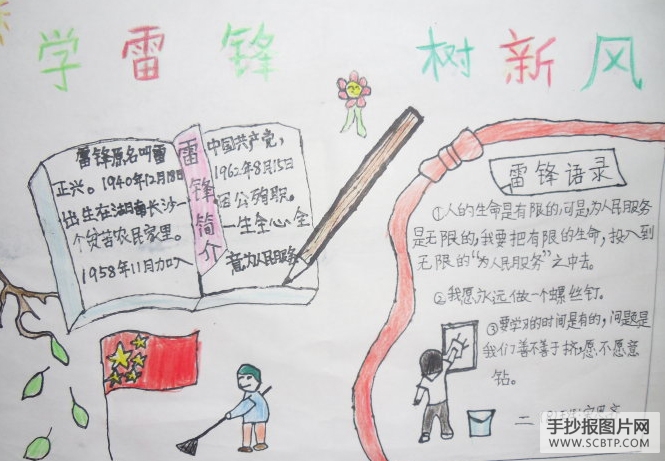 学雷锋 树新风
雷锋原名叫雷
正兴。1940年12月18日
出生在湖南长沙一
个贫苦农民家里。
1958年11月加入
雷锋简介
中国共产党,
1962年8月15日
因公殉职。
一生全心全
意为人民服务
雷锋语录
①人的生命是有限的,可是为人民服务
是无限的,我要把有限的生命,投入到
无限的“为人民服务”之中去。
②我愿永远做一个螺丝钉。
③要学习的时间是有的,问题是
我们善不善于挤,愿不愿意
钻。
二
手抄报图片网
WWW.SCBTP.COM